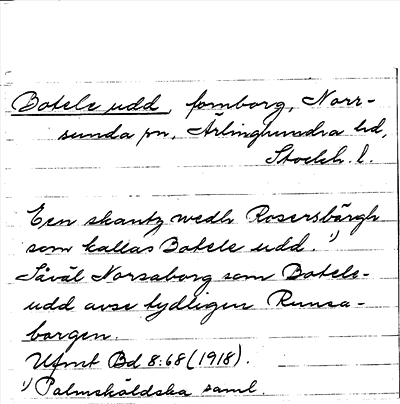 Botele udd, fornborg, Norr-
sunda sn, Ärlinghundra hd,
Stockh. l.
Een skantz wedh Rosersbärgh
som kallas Botele udd. ¹)
Såväl Norsaborg som Botele-
udd avse tydligen Runsa-
borgen.
Ufmt Bd 8:68 (1918).
¹) Palmsköldska saml.